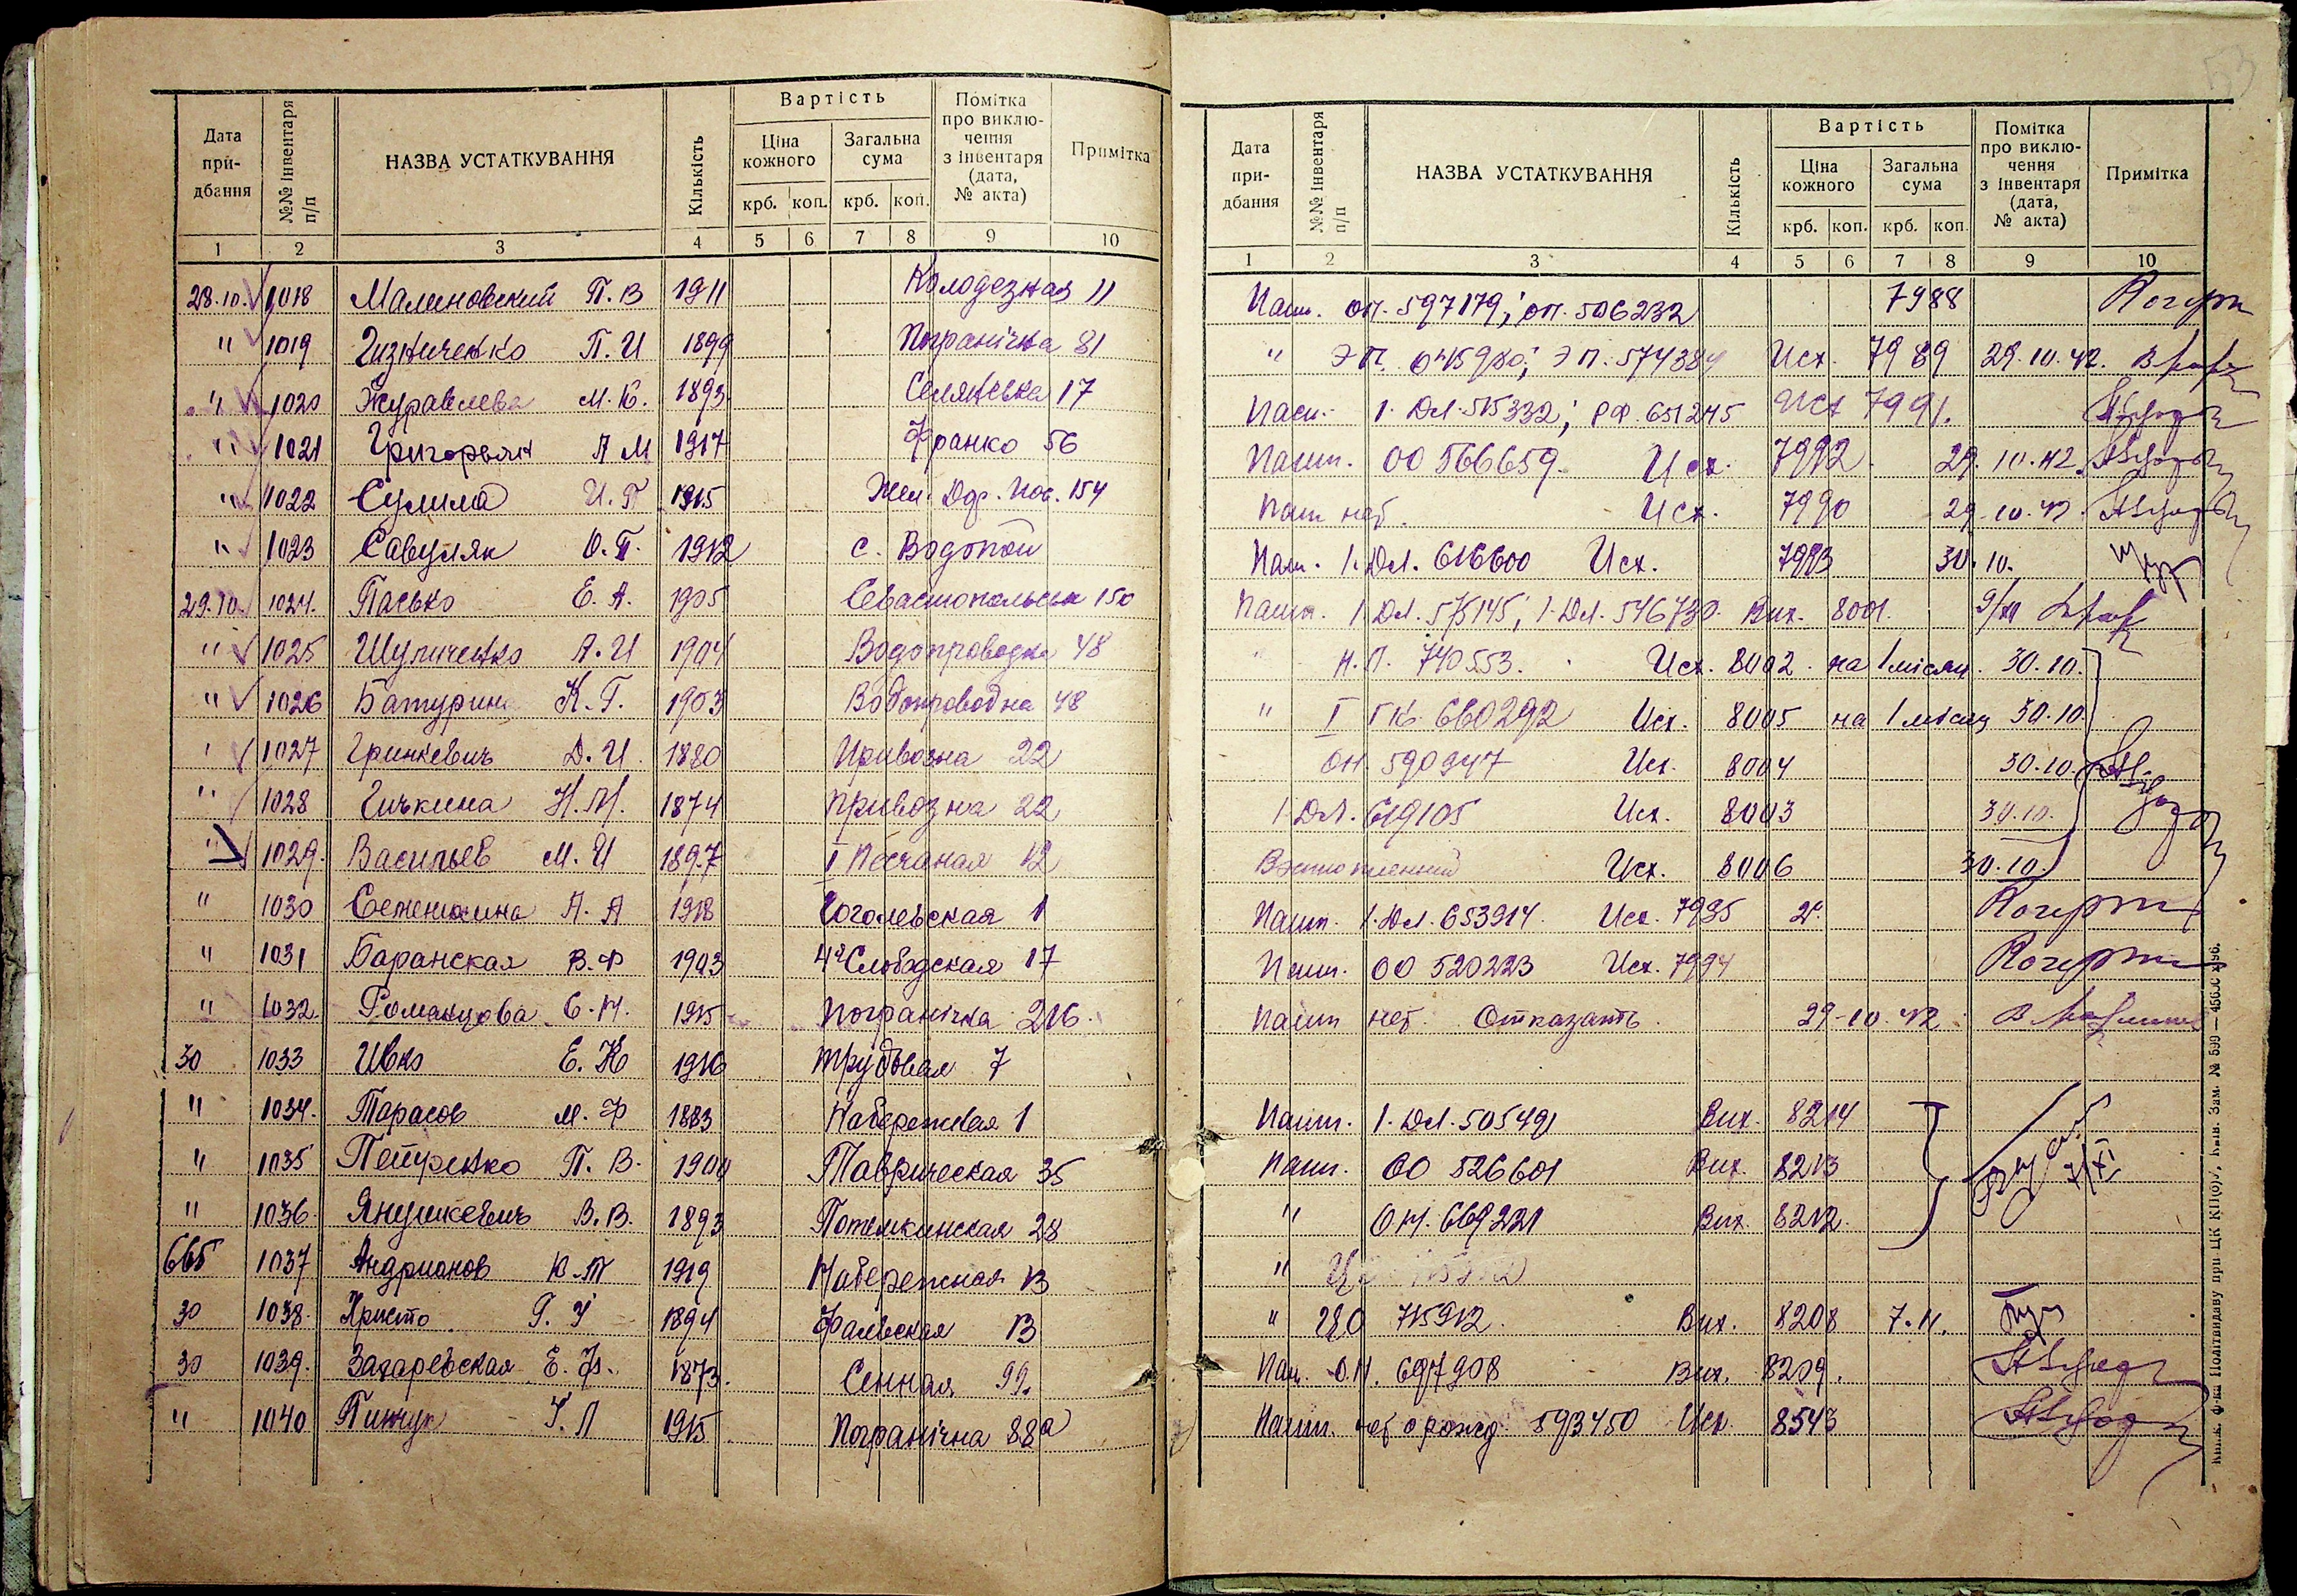 53
Дата придбання
№№ інвентаря п/п
НАЗВА УСТАТКУВАННЯ
Кількість
Вартість
Ціна кожного
Загальна сума
крб. коп. крб. коп.
Помітка про виключення з інвентаря (дата, № акта)
Примітка
1 2 3 4 5 6 7 8 9 10
28.10. 1018 Малиновский П.В 1911 Колодезная 11
" 1019 Гизниченко П.И 1899 Погранічна 81
" 1020 Журавлева М.К. 1893 Селянська 17
" 1021 Григорьян А М 1917 Франко 56
" 1022 Сулима И.П 1915 Жел. Дор. Пос. 154
" 1023 Савуляк О.Т. 1912 с. Водопой
29.10. 1024. Пасько Е.А. 1905 Севастопольськ 150
" 1025 Шуличенко А.И 1904 Водопроводна 48
" 1026 Батурина К.Г. 1903 Водопроводна 48
" 1027 Гринкевич Д.И. 1880 Привозна 22
" 1028 Гичкина Н.М. 1874 Привозна 22
" 1029. Васильев М.И 1897 I Песчаная 12
" 1030 Семенихина А.А 1918 Гоголевская 1
" 1031 Баранская В.Ф 1903 4я Слободская 17
" 1032. Романцова Е.Н. 1915 Погранічна 216.
30 1033 Ивко Е.К 1916 Трудовая 7
" 1034. Тарасов М.Ф 1883 Набережная 1
" 1035 Петренко П.В. 1900 Таврическая 35
" 1036. Янушкевич В.В. 1893 Потемкинская 28
665 1037 Андрианов В.Т 1919 Набережная 13
30 1038. Христо Г.У 1894 Фалеевская 13
30 1039. Захаревская Е.Ф. 1873. Сенная 99.
" 1040 Пинчук У.Л 1915 Погранічна 88а
Дата придбання
№№ інвентаря п/п
НАЗВА УСТАТКУВАННЯ
Кількість
Вартість
Ціна кожного
Загальна сума
крб. коп. крб. коп.
Помітка про виключення з інвентаря (дата, № акта)
Примітка
1 2 3 4 5 6 7 8 9 10
Пашп. ОП. 597179; ОП. 506232 7988
" ЭП. ; ЭП. 574384 Исх. 7989 29.10.42.
Пасп. 1. ДЛ. 515332; РФ. 651245 Исх 7991.
Пашп. ОО 566659. Исх. 7992. 29.10.42.
Пашп нет. Исх. 7990 29.10.42.
Паш. 1. ДЛ. 616600 Исх. 7993 30.10.
Пашп. 1. ДЛ. 575145; 1. ДЛ. 546730. Вих. 8001.
" Н.П. 740553. Исх. 8002. на 1 місяц. 30.10.
" I ГК 660292 Исх. 8005 на 1 місяц 30.10.
ОН. 590947 Исх. 8004 30.10.
1. ДЛ. 619105 Исх. 8003 30.10.
Исх. 8006 30.10.
Пашп. 1. ДЛ. 653914. Исх. 7995
Пашп. ОО 520223 Исх. 7994
Пашп нет. Отказать. 29-10.42
Пашп. 1. ДЛ. 505491 Вих. 8214
Пашп. ОО 526601 Вих. 8213
" ОН. 669221 Вих. 8212.
"
" 715912. Вих. 8208 7.11.
Паш. О.Н. 697908 Вих. 8209.
Пашп. нет о рожд. 593450 Исх. 8543